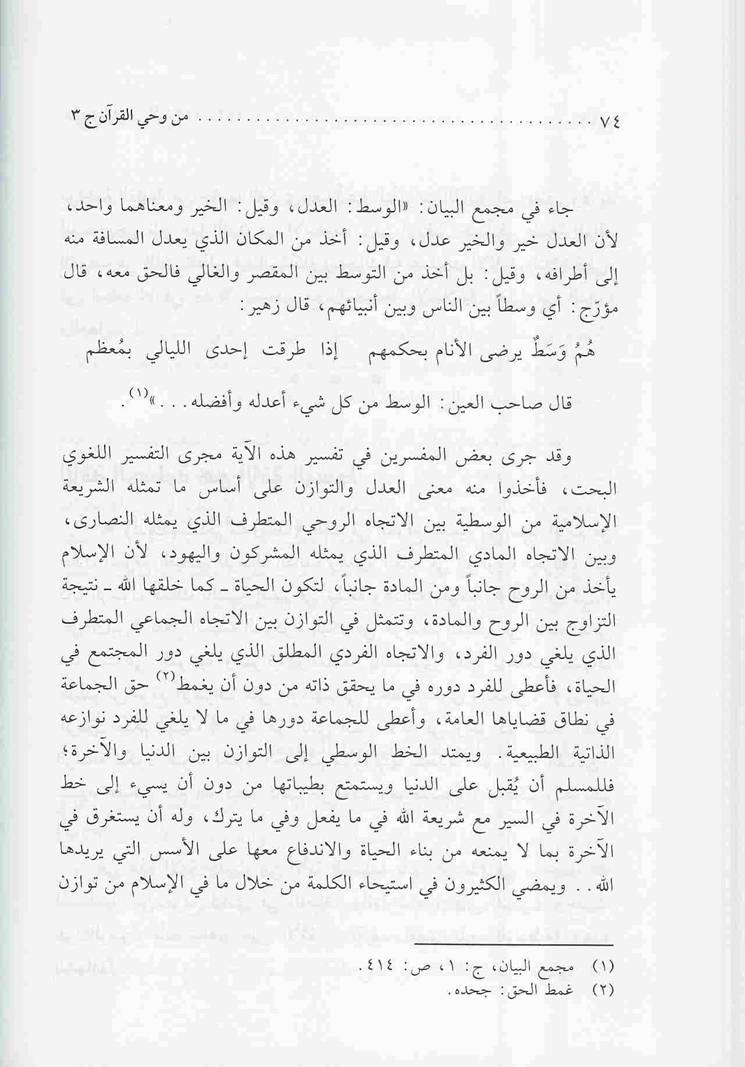 ٧٤ ......................................... من وحي القرآن ج ٣
جاء في مجمع البيان: «الوسط: العدل، وقيل: الخير ومعناهما واحد،
لأن العدل خير والخير عدل، وقيل: أخذ من المكان الذي يعدل المسافة منه
إلى أطرافه، وقيل: بل أخذ من التوسط بين المقصر والغالي فالحق معه، قال
مؤرّج: أي وسطاً بين الناس وبين أنبيائهم، قال زهير:
هُمُ وَسَطٌ يرضى الأنام بحكمهم إذا طرقت إحدى الليالي بمُعظم
قال صاحب العين: الوسط من كل شيء أعدله وأفضله...»(١).
وقد جرى بعض المفسرين في تفسير هذه الآية مجرى التفسير اللغوي
البحت، فأخذوا منه معنى العدل والتوازن على أساس ما تمثله الشريعة
الإسلامية من الوسطية بين الاتجاه الروحي المتطرف الذي يمثله النصارى،
وبين الاتجاه المادي المتطرف الذي يمثله المشركون واليهود، لأن الإسلام
يأخذ من الروح جانباً ومن المادة جانباً، لتكون الحياة ـ كما خلقها الله ـ نتيجة
التزاوج بين الروح والمادة، وتتمثل في التوازن بين الاتجاه الجماعي المتطرف
الذي يلغي دور الفرد، والاتجاه الفردي المطلق الذي يلغي دور المجتمع في
الحياة، فأعطى للفرد دوره في ما يحقق ذاته من دون أن يغمط(٢) حق الجماعة
في نطاق قضاياها العامة، وأعطى للجماعة دورها في ما لا يلغي للفرد نوازعه
الذاتية الطبيعية. ويمتد الخط الوسطي إلى التوازن بين الدنيا والآخرة؛
فللمسلم أن يُقبل على الدنيا ويستمتع بطيباتها من دون أن يسيء إلى خط
الآخرة في السير مع شريعة الله في ما يفعل وفي ما يترك، وله أن يستغرق في
الآخرة بما لا يمنعه من بناء الحياة والاندفاع معها على الأسس التي يريدها
الله.. ويمضي الكثيرون في استيحاء الكلمة من خلال ما في الإسلام من توازن
(١) مجمع البيان، ج: ١، ص: ٤١٤.
(٢) غمط الحق: جحده.